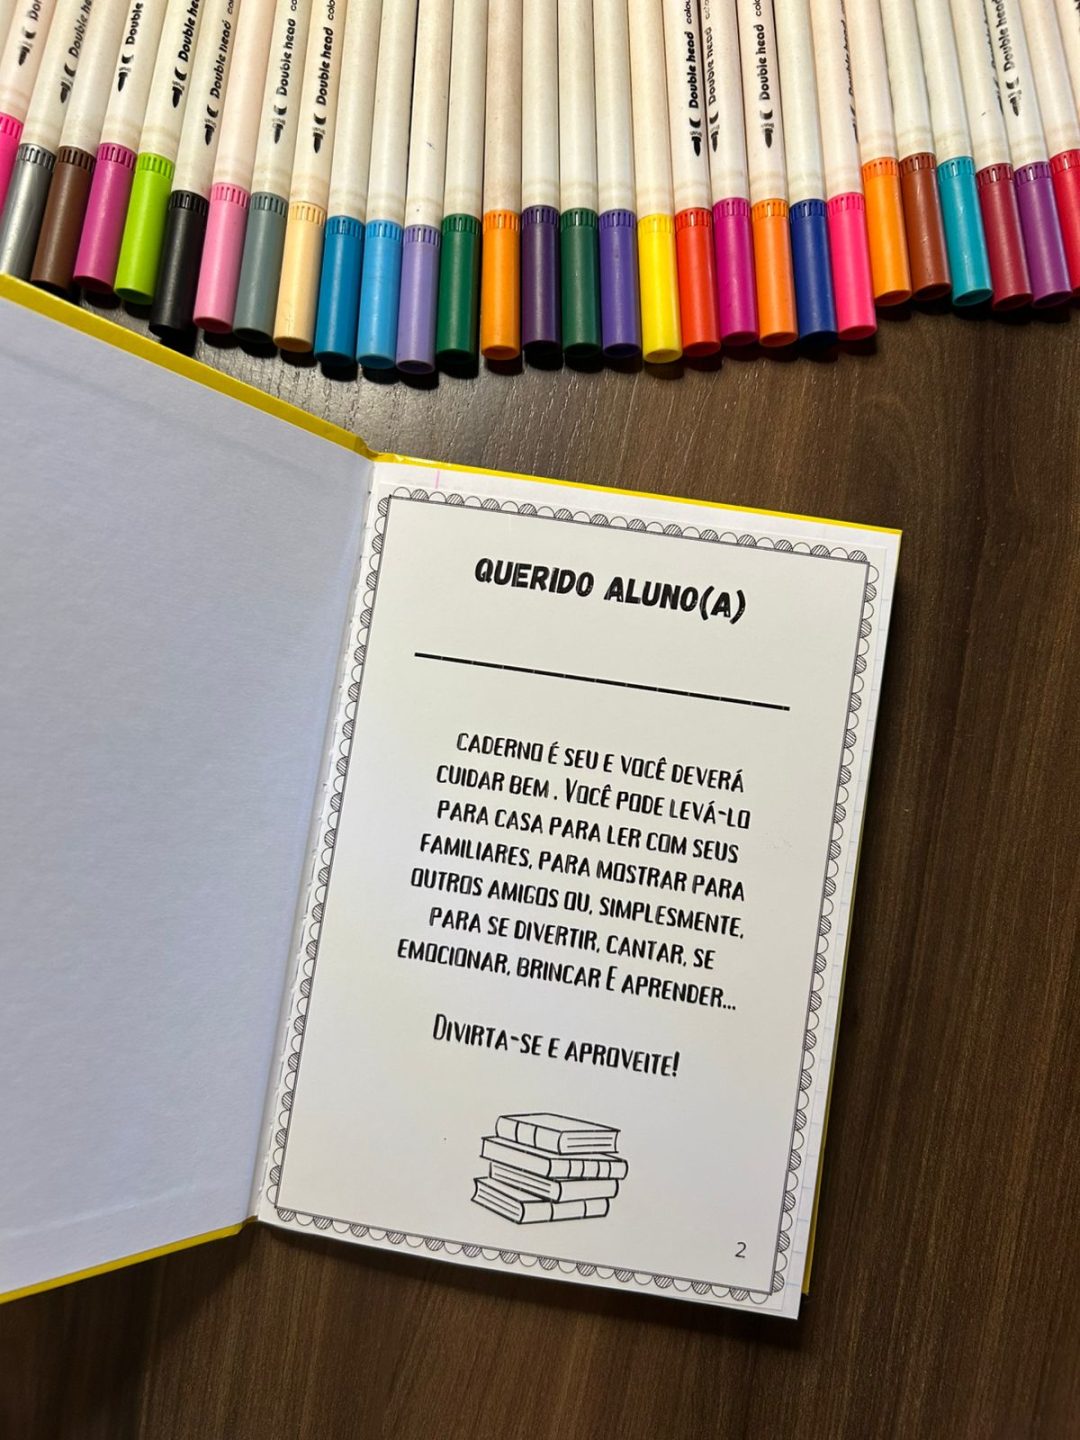 Double head
Double head
Double head
Double head
Double head
Double head colou
Double head
Double head
Double head colo
QUERIDO ALUNO(A)
CADERNO É SEU E VOCÊ DEVERÁ
CUIDAR BEM . VOCÊ PODE LEVÁ-LO
PARA CASA PARA LER COM SEUS
FAMILIARES, PARA MOSTRAR PARA
OUTROS AMIGOS OU, SIMPLESMENTE,
PARA SE DIVERTIR, CANTAR, SE
EMOCIONAR, BRINCAR E APRENDER...
DIVIRTA-SE E APROVEITE!
2